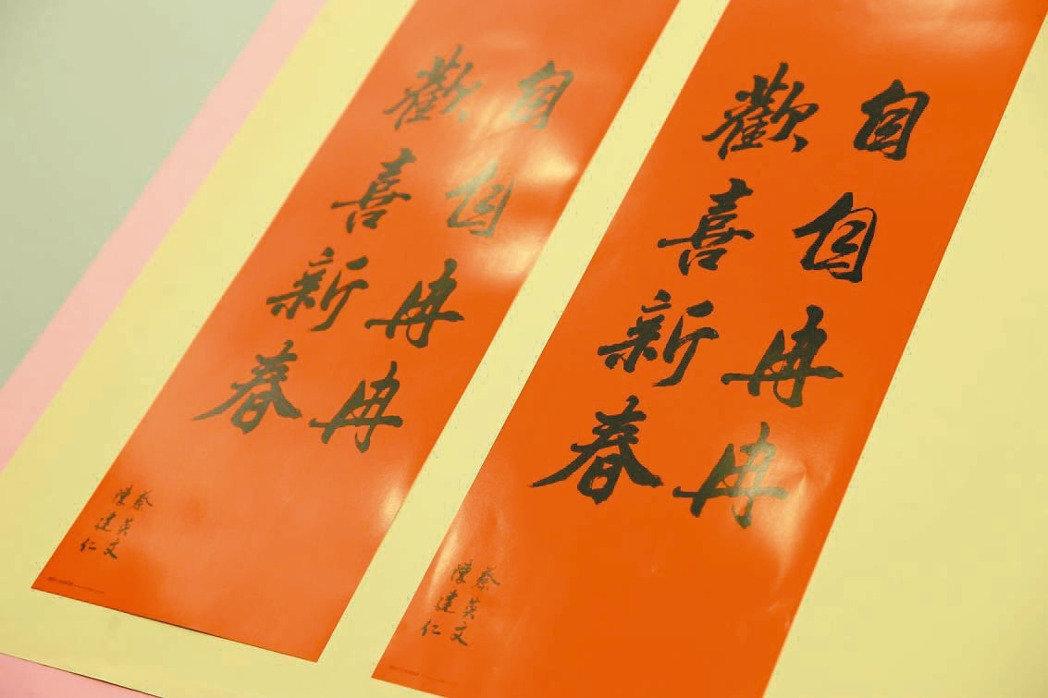 自自冉冉
歡喜新春
蔡英文
陳建仁
自自冉冉
歡喜新春
蔡英文
陳建仁